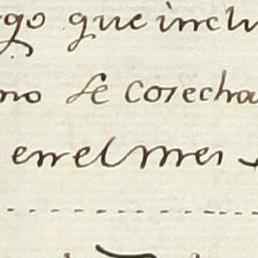 go que inclu
no se cosecha
en el mes